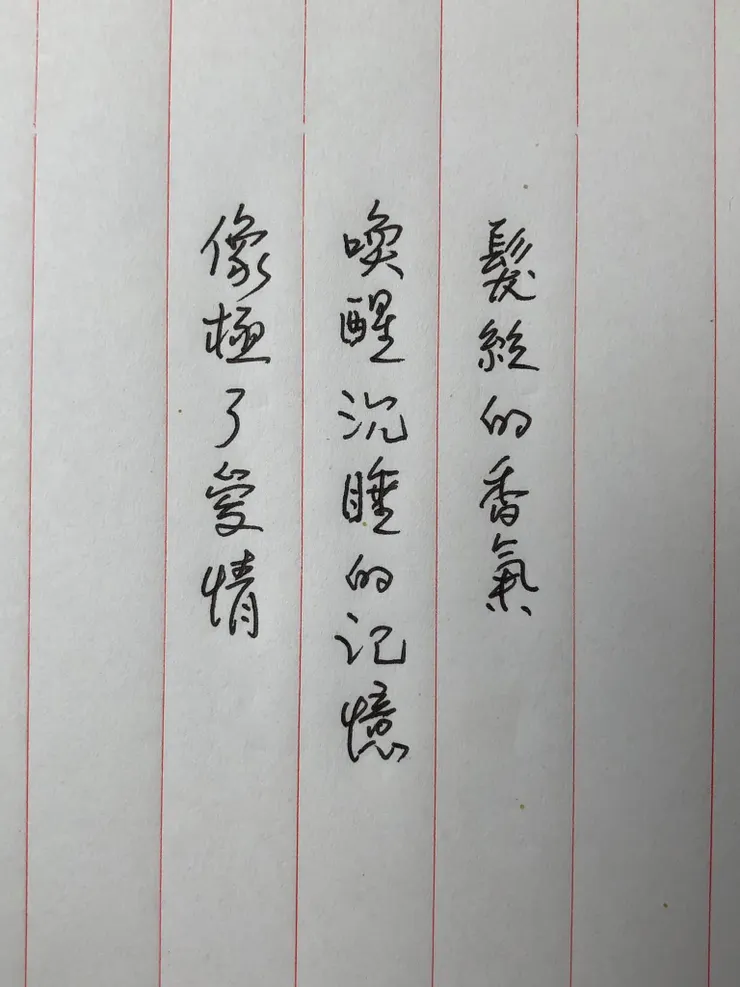 髮絲的香氣
喚醒沉睡的记憶
像極了愛情